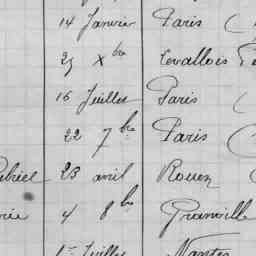 14 Janvier Paris
25 Xbre Levallois Pe
16 Juillet Paris
22 7bre Paris
abriel 23 avril Rouen
rie 4 8bre Granville
1er Juillet Nantes